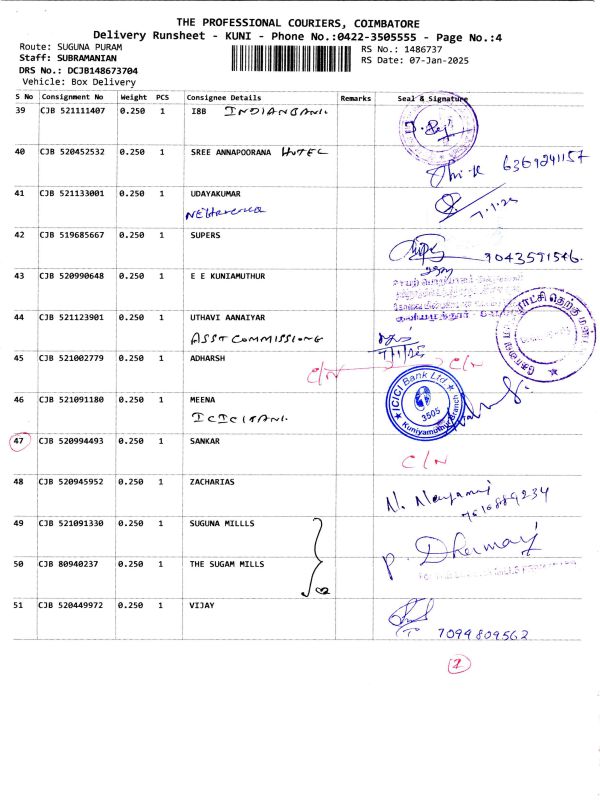 THE PROFESSIONAL COURIERS, COIMBATORE
Delivery Runsheet - KUNI - Phone No.:0422-3505555 - Page No.:4
Route: SUGUNA PURAM
RS No.: 1486737
Staff: SUBRAMANIAN
RS Date: 07-Jan-2025
DRS No.: DCJB148673704
Vehicle: Box Delivery
S No Consignment No Weight PCS Consignee Details Remarks Seal & Signature
39 CJB 521111407 0.250 1 IBB INDIANBANK.
40 CJB 520452532 0.250 1 SREE ANNAPOORANA HOTEL
6369241157
41 CJB 521133001 0.250 1 UDAYAKUMAR
7.1.25
42 CJB 519685667 0.250 1 SUPERS
9043591546.
43 CJB 520990648 0.250 1 E E KUNIAMUTHUR
44 CJB 521123901 0.250 1 UTHAVI AANAIYAR
ASST COMMISSIONG
7/1/25
45 CJB 521002779 0.250 1 ADHARSH
C/N C/N
46 CJB 521091180 0.250 1 MEENA
ICICIBANK.
ICICI Bank Ltd
3505
Kuniyamuthur Branch
47 CJB 520994493 0.250 1 SANKAR
C/N
48 CJB 520945952 0.250 1 ZACHARIAS
49 CJB 521091330 0.250 1 SUGUNA MILLLS
50 CJB 80940237 0.250 1 THE SUGAM MILLS
51 CJB 520449972 0.250 1 VIJAY
7094809562